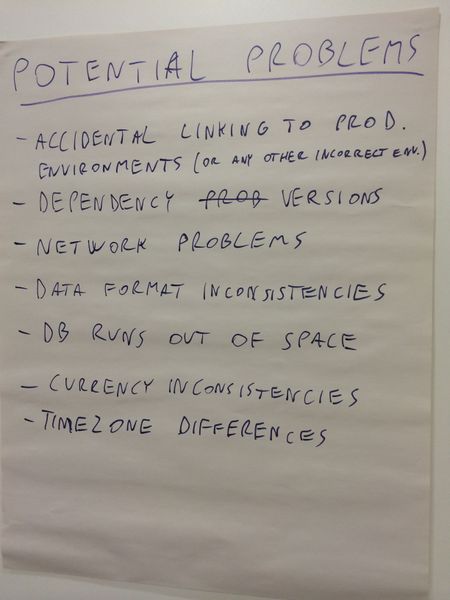 POTENTIAL PROBLEMS
- ACCIDENTAL LINKING TO PROD.
ENVIRONMENTS (OR ANY OTHER INCORRECT ENV.)
- DEPENDENCY PROB VERSIONS
- NETWORK PROBLEMS
- DATA FORMAT INCONSISTENCIES
- DB RUNS OUT OF SPACE
- CURRENCY INCONSISTENCIES
- TIMEZONE DIFFERENCES